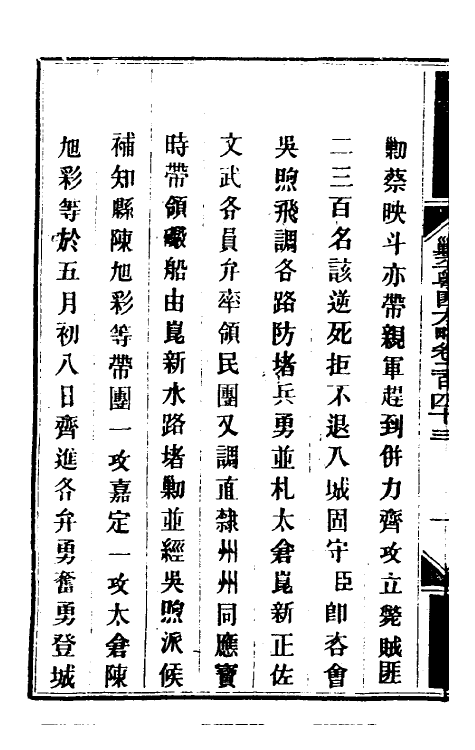 剿平粵匪方略卷二百四十三
一
勦蔡映斗亦帶親軍趕到併力齊攻立斃賊匪
二三百名該逆死拒不退入城固守臣卽咨會
吳煦飛調各路防堵兵勇並札太倉崑新正佐
文武各員弁率領民團又調直隸州州同應寶
時帶領礮船由崑新水路堵勦並經吳煦派候
補知縣陳旭彩等帶團一攻嘉定一攻太倉陳
旭彩等於五月初八日齊進各弁勇奮勇登城